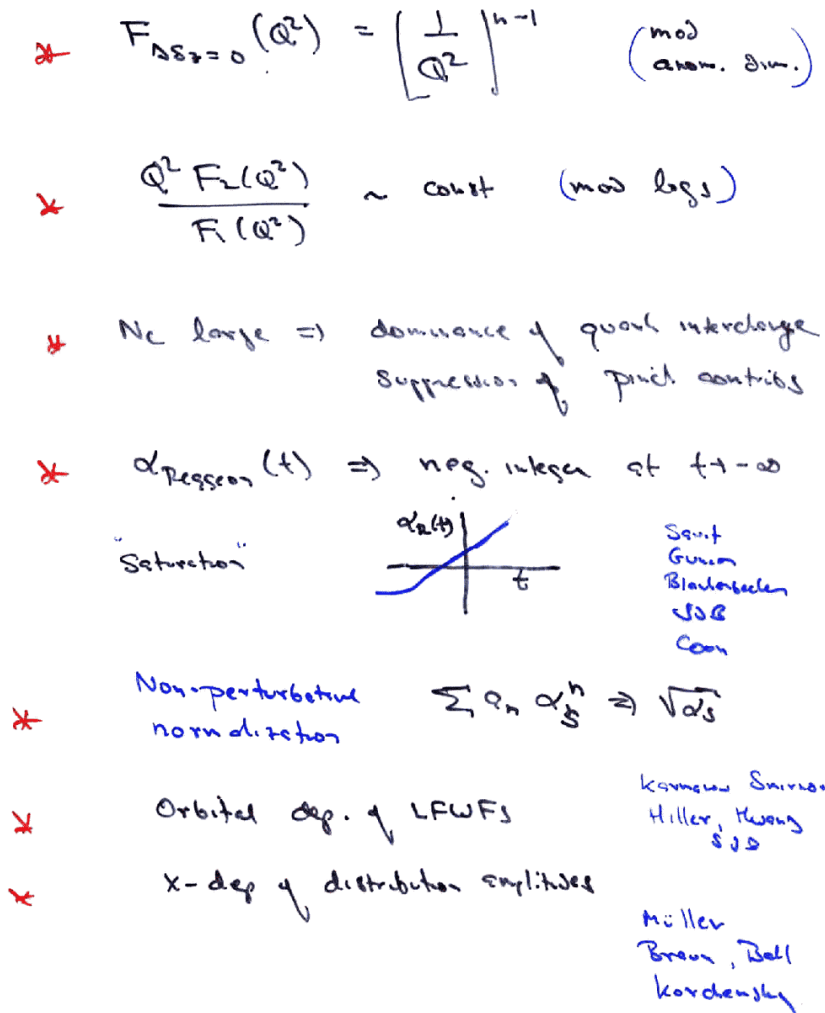 * F_{ΔS_z=0}(Q²) = [1/Q²]^{n-1} (mod anom. dim.)
* Q² F₂(Q²) / F₁(Q²) ~ const (mod logs)
* Nc large ⇒ dominance of quark interchange
suppression of pinch contribs
* α_Reggeon(t) ⇒ neg. integer at t→-∞
"Saturation"
α_R(t)
t
Gunion
Blankenbecler
SJB
Coon
* Non-perturbative
normalization
Σ a_n α_s^n ⇒ √α_s
* Orbital dep. of LFWFs
Karmanov Smirnov
Hiller, Hwang
SJB
* x-dep of distribution amplitudes
Müller
Braun, Ball